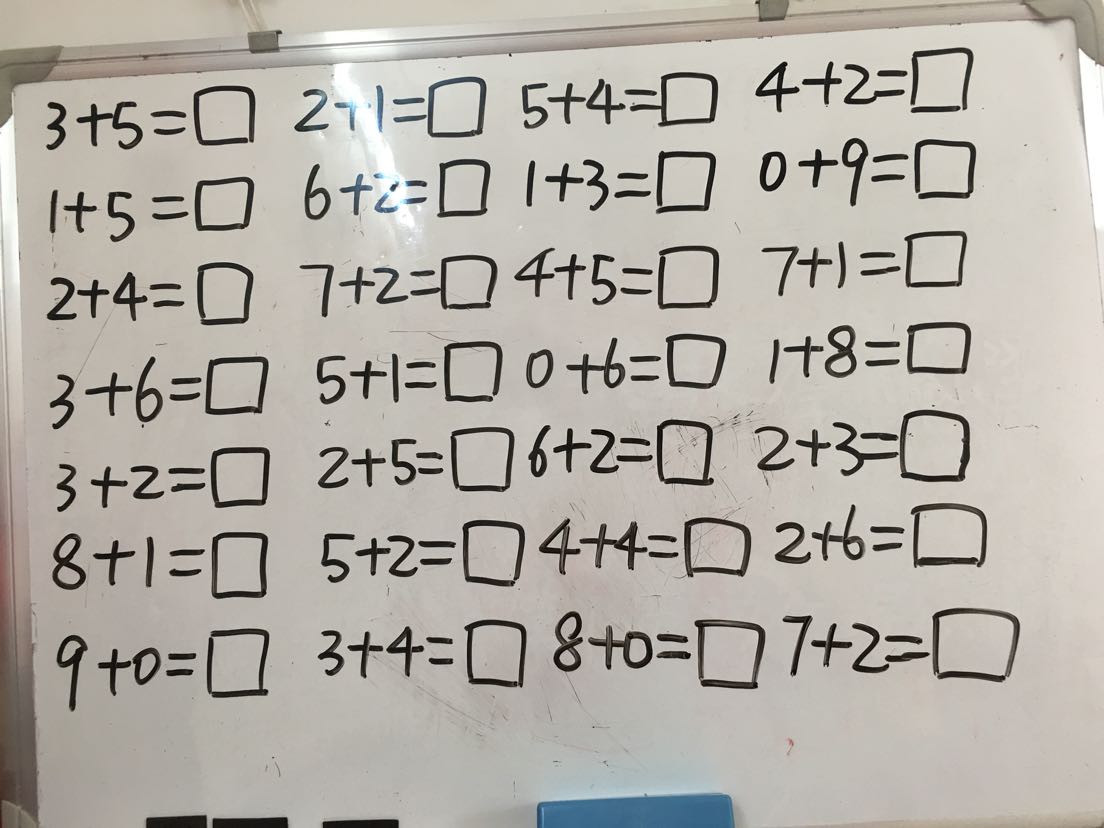 3+5=□ 2+1=□ 5+4=□ 4+2=□
1+5=□ 6+2=□ 1+3=□ 0+9=□
2+4=□ 7+2=□ 4+5=□ 7+1=□
3+6=□ 5+1=□ 0+6=□ 1+8=□
3+2=□ 2+5=□ 6+2=□ 2+3=□
8+1=□ 5+2=□ 4+4=□ 2+6=□
9+0=□ 3+4=□ 8+0=□ 7+2=□